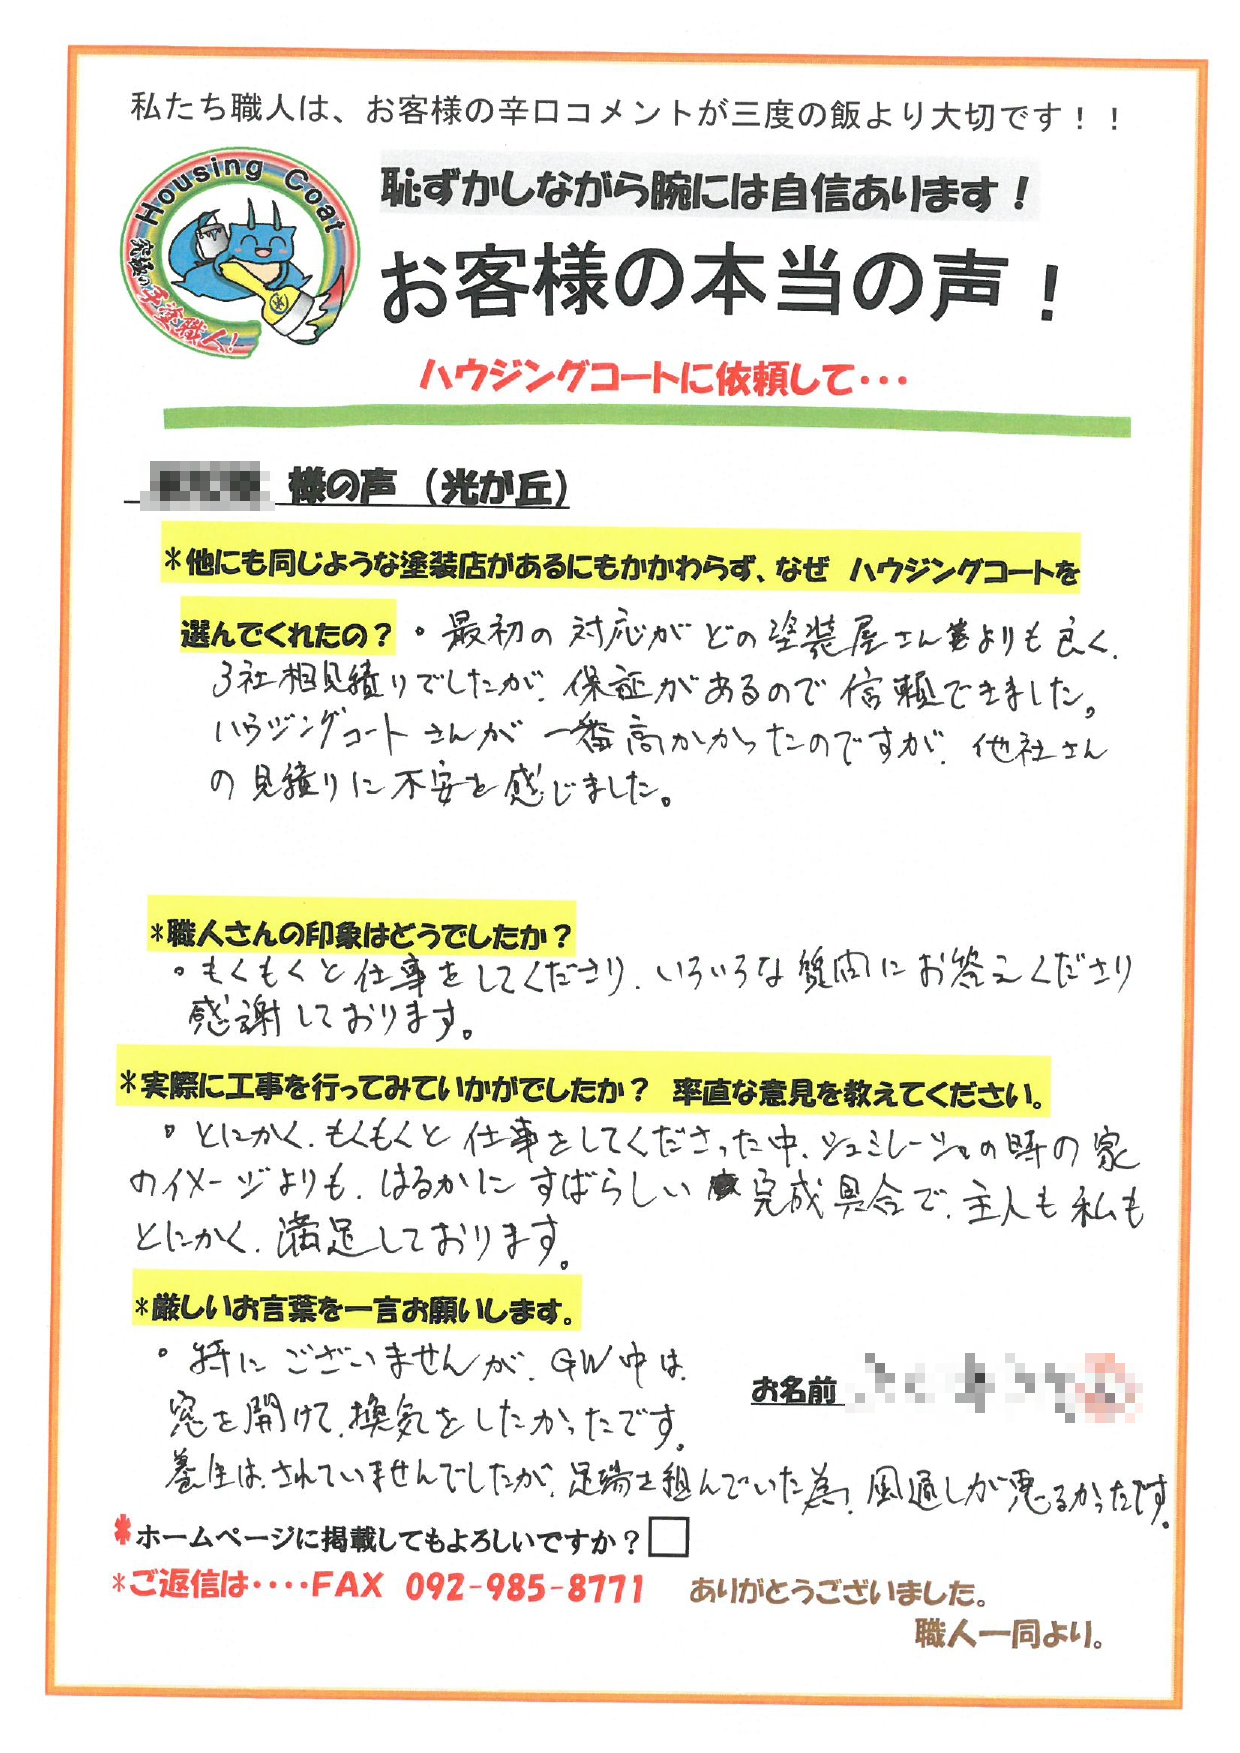 私たち職人は、お客様の辛口コメントが三度の飯より大切です！！
Housing Coat
究極の手塗職人！
恥ずかしながら腕には自信あります！
お客様の本当の声！
ハウジングコートに依頼して・・・
様の声（光が丘）
*他にも同じような塗装店があるにもかかわらず、なぜ ハウジングコートを
選んでくれたの？ ・最初の対応がどの塗装屋さんよりも良く、
3社相見積りでしたが、保証があるので信頼できました。
ハウジングコートさんが一番高かかったのですが、他社さん
の見積りに不安を感じました。
*職人さんの印象はどうでしたか？
・もくもくと仕事をしてくださり、いろいろな質問にお答えくださり
感謝しております。
*実際に工事を行ってみていかがでしたか？ 率直な意見を教えてください。
・とにかく、もくもくと仕事をしてくださった中、シュミレーションの時の家
のイメージよりも、はるかにすばらしい完成具合で、主人も私も
とにかく、満足しております。
*厳しいお言葉を一言お願いします。
・特にございませんが、GW中は、
窓を開けて、換気をしたかったです。
お名前
養生は、されていませんでしたが、足場を組んでいた為、風通しが悪るかったです。
*ホームページに掲載してもよろしいですか？□
*ご返信は・・・・FAX 092-985-8771 ありがとうございました。
職人一同より。